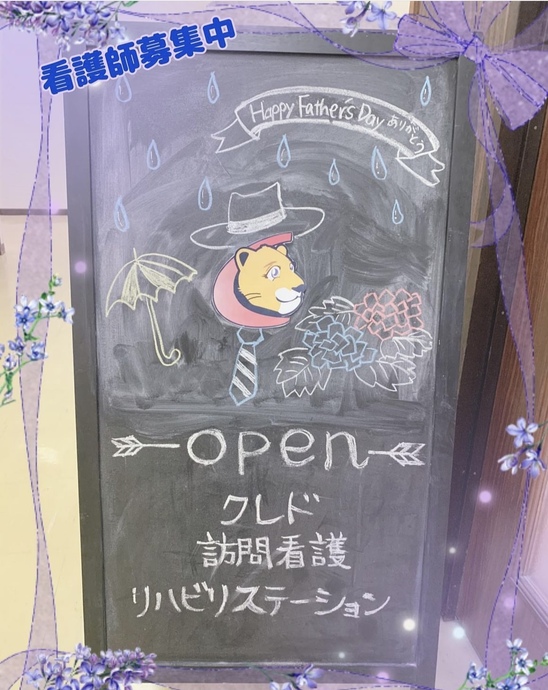 看護師募集中
Happy Father's Day ありがとう
open
クレド
訪問看護
リハビリステーション